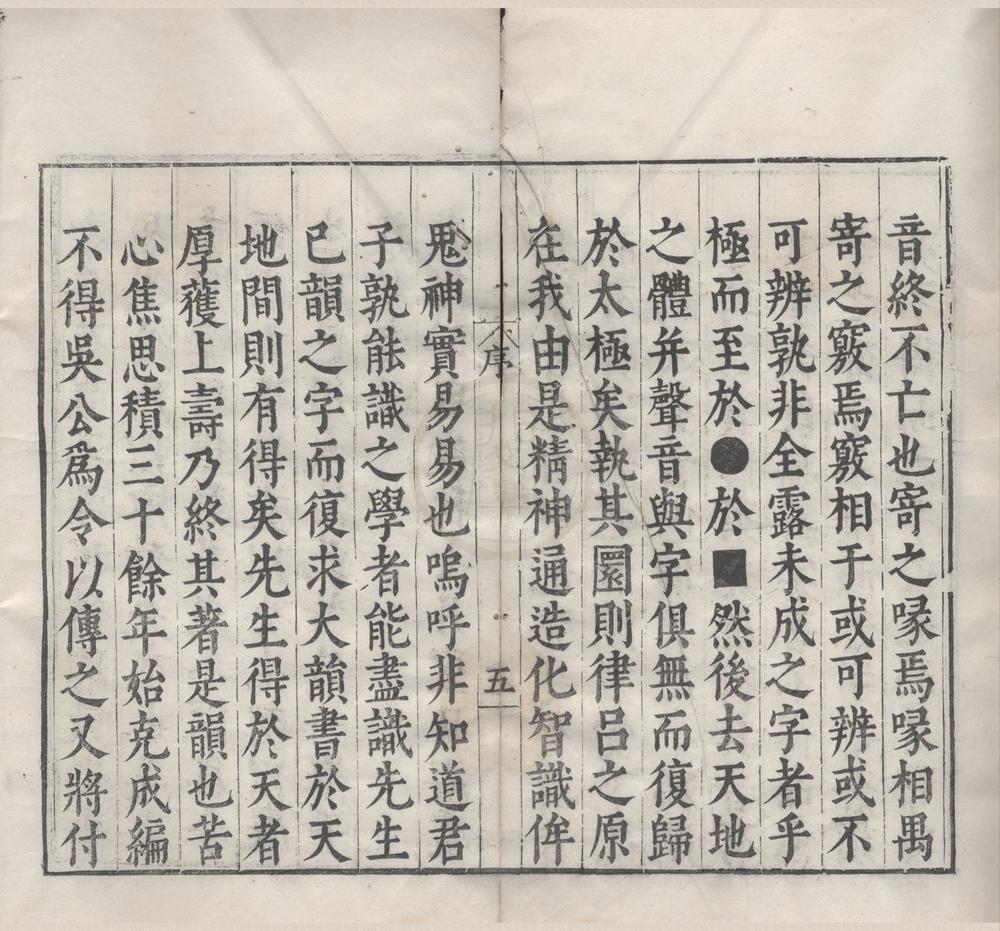 音終不亡也寄之喙焉喙相禺
寄之竅焉竅相于或可辨或不
可辨孰非全露未成之字者乎
極而至於●於■然後去天地
之體并聲音與字俱無而復歸
於太極矣執其圜則律呂之原
在我由是精神通造化智識侔
序
五
鬼神實易易也嗚呼非知道君
子孰能識之學者能盡識先生
已韻之字而復求大韻書於天
地間則有得矣先生得於天者
厚蒦上壽乃終其著是韻也苦
心焦思積三十餘年始克成編
不得吳公爲令以傳之又將付